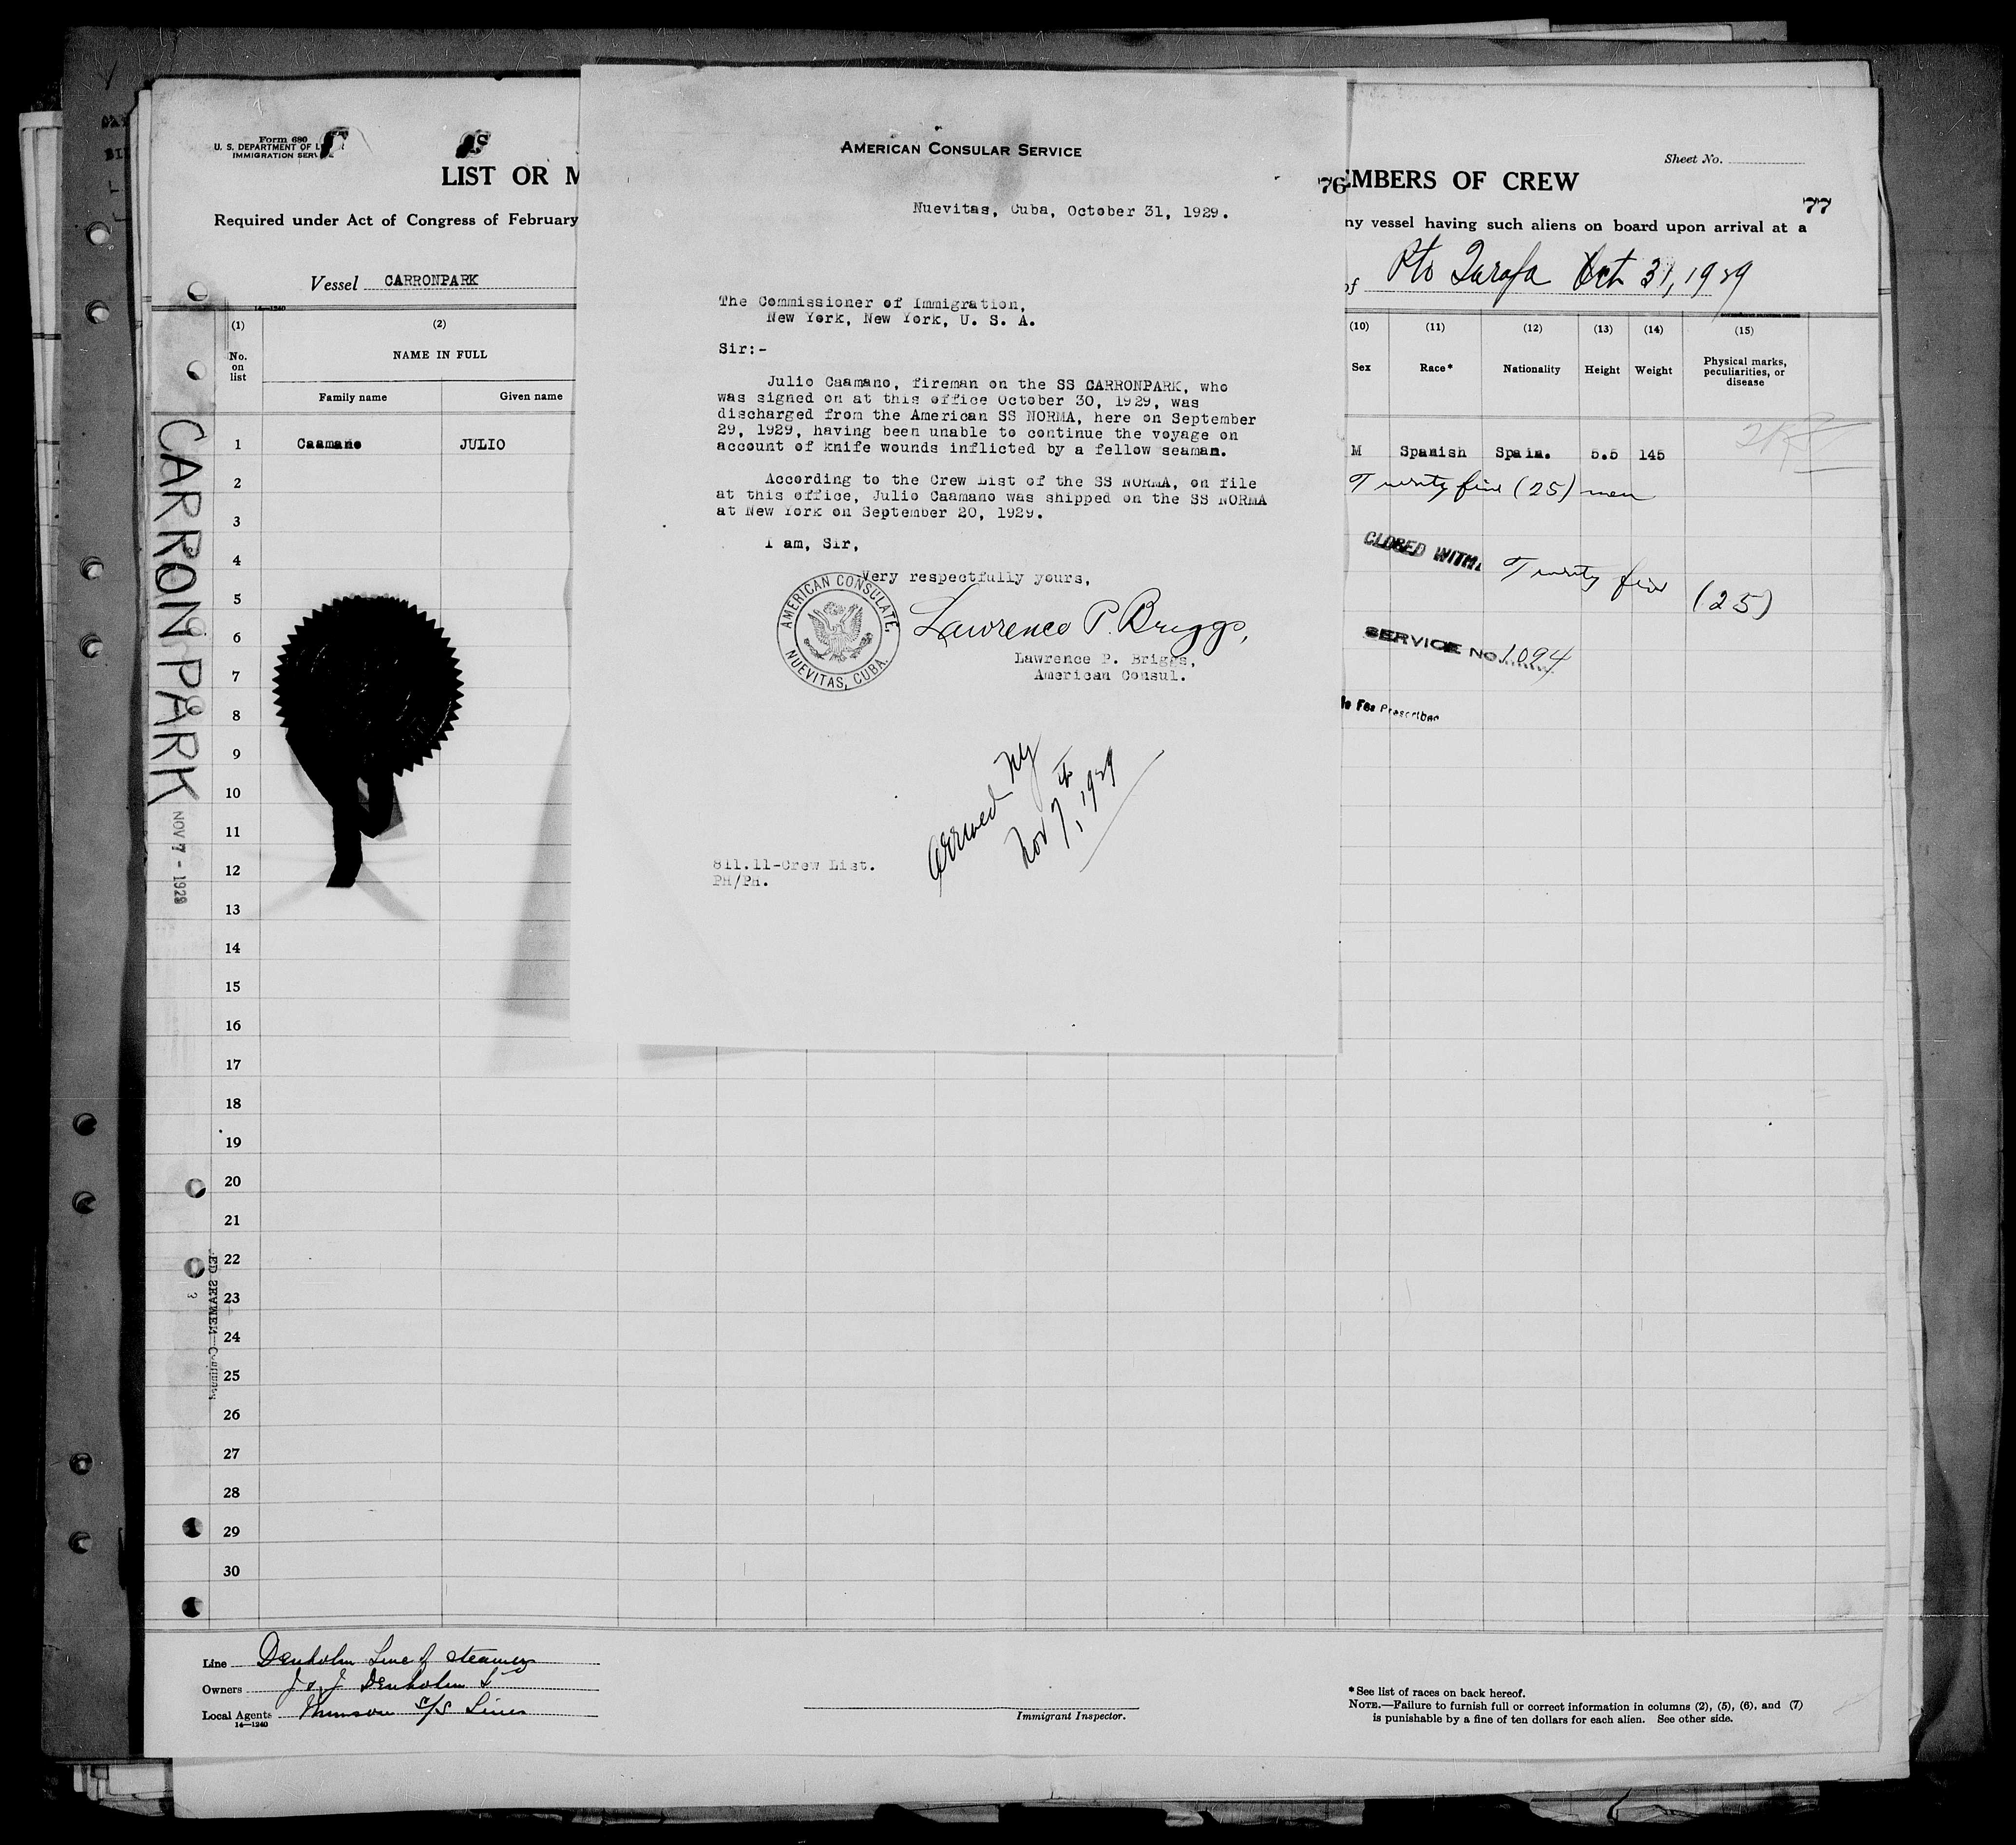 Form 680
U. S. DEPARTMENT OF L
IMMIGRATION SERV
LIST OR M
Required under Act of Congress of February
Vessel CARRONPARK
14—1240
(1)
(2)
No.
on
list
NAME IN FULL
Family name
Given name
1 Caamano JULIO
2
3
4
5
6
7
8
9
10
11
12
13
14
15
16
17
18
19
20
21
22
23
24
25
26
27
28
29
30
CARRONPARK
NOV 7 - 1929
ED SEAMEN—Continued
3
AMERICAN CONSULAR SERVICE
Nuevitas, Cuba, October 31, 1929.
The Commissioner of Immigration,
New York, New York, U. S. A.
Sir:-
Julio Caamano, fireman on the SS CARRONPARK, who
was signed on at this office October 30, 1929, was
discharged from the American SS NORMA, here on September
29, 1929, having been unable to continue the voyage on
account of knife wounds inflicted by a fellow seaman.
According to the Crew List of the SS NORMA, on file
at this office, Julio Caamano was shipped on the SS NORMA
at New York on September 20, 1929.
I am, Sir,
Very respectfully yours,
AMERICAN CONSULATE,
NUEVITAS, CUBA.
Lawrence P. Briggs,
Lawrence P. Briggs,
American Consul.
Arrived NY
Nov 7, 1929
811.11-Crew List.
PH/PH.
Sheet No.
76
EMBERS OF CREW
77
ny vessel having such aliens on board upon arrival at a
of Pto Tarafa Oct 31, 1929
(10) (11) (12) (13) (14) (15)
Sex Race* Nationality Height Weight Physical marks,
peculiarities, or
disease
M Spanish Spain. 5.5 145
Twenty five (25) men
CLOSED WITH Twenty five (25)
SERVICE NO. 1094
No Fee Prescribed
Line Denholm Line of Steamers
Owners J & J Denholm Ld
Local Agents Munson S/S Line
14—1240
Immigrant Inspector.
*See list of races on back hereof.
NOTE.—Failure to furnish full or correct information in columns (2), (5), (6), and (7)
is punishable by a fine of ten dollars for each alien. See other side.